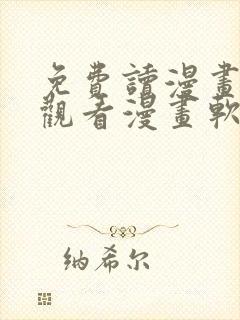 免費讀漫畫
觀看漫畫軟
纳希尔